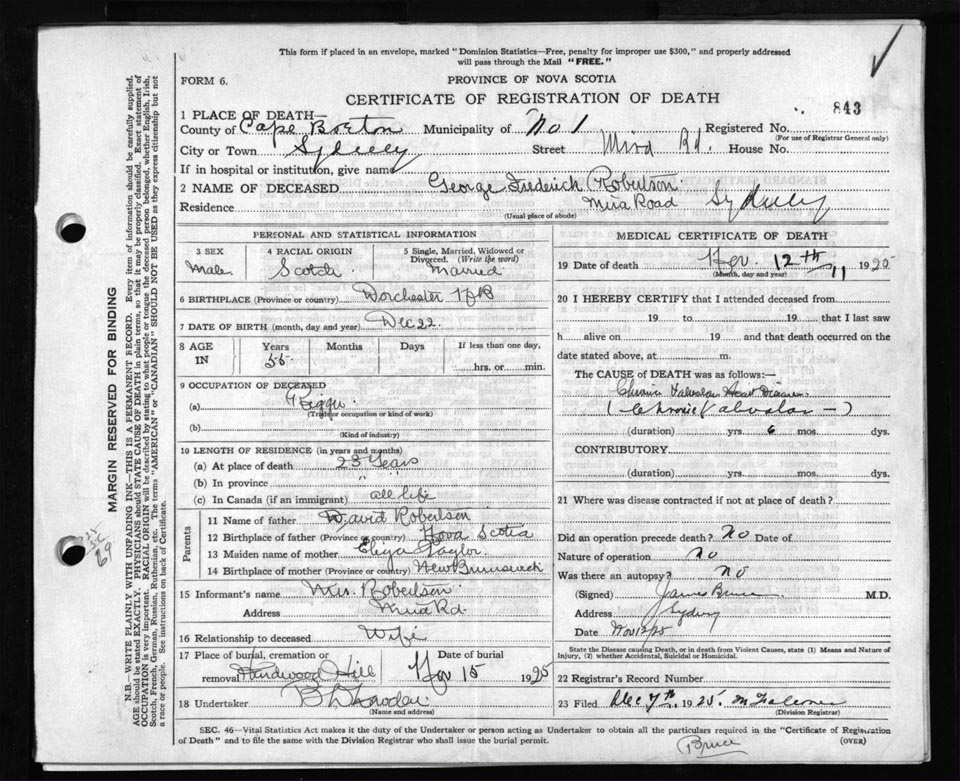 This form if placed in an envelope, marked "Dominion Statistics—Free, penalty for improper use $300," and properly addressed
will pass through the Mail "FREE."
FORM 6.
PROVINCE OF NOVA SCOTIA
CERTIFICATE OF REGISTRATION OF DEATH
843
1 PLACE OF DEATH—
County of Cape Breton Municipality of No 1 Registered No.
(For use of Registrar General only)
City or Town Sydney Street Mira Rd. House No.
If in hospital or institution, give name
2 NAME OF DECEASED George Fredrick Robertson
Residence Mira Road Sydney
(Usual place of abode)
PERSONAL AND STATISTICAL INFORMATION
3 SEX 4 RACIAL ORIGIN 5 Single, Married, Widowed or
Divorced. (Write the word)
Male Scotch Married
6 BIRTHPLACE (Province or country) Dorchester N B
7 DATE OF BIRTH (month, day and year) Dec 22
8 AGE IN Years Months Days If less than one day,
55 hrs. or min.
9 OCCUPATION OF DECEASED
(a) Rigger
(Trade or occupation or kind of work)
(b)
(Kind of industry)
10 LENGTH OF RESIDENCE (in years and months)
(a) At place of death 23 Years
(b) In province "
(c) In Canada (if an immigrant) all life
Parents
11 Name of father David Robertson
12 Birthplace of father (Province or country) Nova Scotia
13 Maiden name of mother Eliza Taylor
14 Birthplace of mother (Province or country) New Brunswick
15 Informant's name Mrs. Robertson
Address Mira Rd.
16 Relationship to deceased Wife
17 Place of burial, cremation or Date of burial
removal Hardwood Hill Nov 15 1925
18 Undertaker
(Name and address)
MEDICAL CERTIFICATE OF DEATH
19 Date of death Nov. 12th 11 1925
(Month, day and year)
20 I HEREBY CERTIFY that I attended deceased from
19 to 19 that I last saw
h alive on 19 and that death occurred on the
date stated above, at m.
The CAUSE OF DEATH was as follows:—
Chronic Valvular Heart Disease
(Chronic Valvular —)
(duration) yrs. 6 mos. dys.
CONTRIBUTORY
(duration) yrs. mos. dys.
21 Where was disease contracted if not at place of death?
Did an operation precede death? No Date of
Nature of operation no
Was there an autopsy? no
(Signed) James Bruce M.D.
Address Sydney
Date Nov 12/25
State the Disease causing Death, or in death from Violent Causes, state (1) Means and Nature of
Injury, (2) whether Accidental, Suicidal or Homicidal.
22 Registrar's Record Number
23 Filed Dec 7th, 1925.
(Division Registrar)
SEC. 46—Vital Statistics Act makes it the duty of the Undertaker or person acting as Undertaker to obtain all the particulars required in the "Certificate of Registration
of Death" and to file the same with the Division Registrar who shall issue the burial permit. (OVER)
Bruce
MARGIN RESERVED FOR BINDING
N.B.—WRITE PLAINLY WITH UNFADING INK—THIS IS A PERMANENT RECORD. Every item of information should be carefully supplied.
AGE should be stated EXACTLY. PHYSICIANS should STATE CAUSE OF DEATH in plain terms, so that it may be properly classified. Exact statement of
OCCUPATION is very important. RACIAL ORIGIN will be described by stating to what people or tongue the deceased person belonged, whether English, Irish,
Scotch, French, German, Russian, Ruthenian, etc. The terms "AMERICAN" or "CANADIAN" SHOULD NOT BE USED as they express citizenship but not
a race or people. See instructions on back of Certificate.